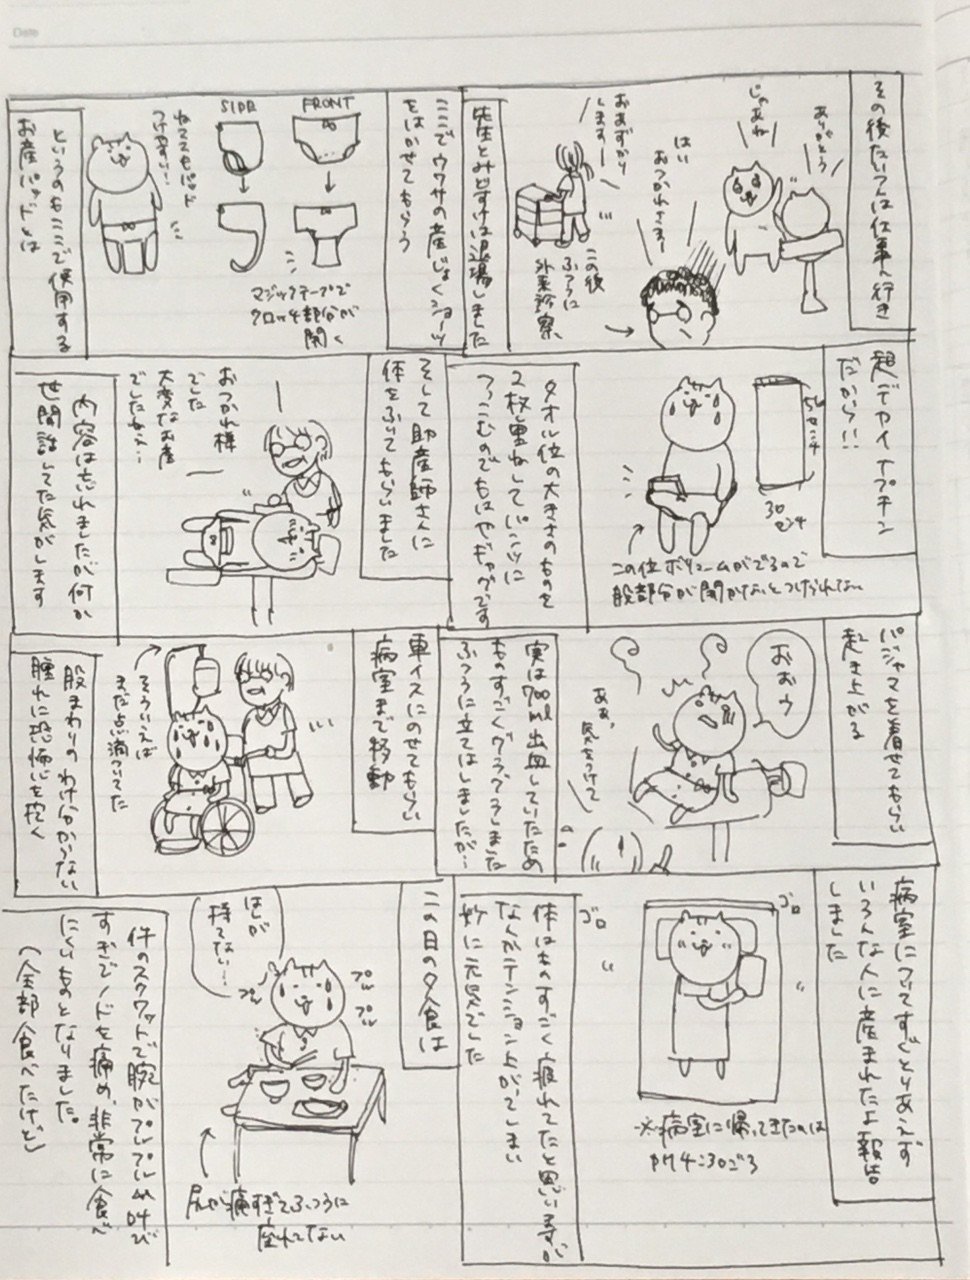 Date
その後だいでは仕事へ行き
ありがとう
じゃあね
はい
おつかれさまー
おあずかり
しますー
この後
ふつうに
外来診察
先生とみどすけは退場しました
ここでウワサの産じょくショーツ
をはかせてもらう
FRONT
SIDE
マジックテープで
クロッチ部分が
開く
というのもここで使用する
お産パッドは
超デカイナプキン
だから!!
30
センチ
この位ボリュームがでるので
股部分が開かないとつけられない
タオル位の大きさのものを
2枚し重ねしてパンツに
つっこむのでもはやギャグです
そして助産師さんに
体をふいてもらいました
おつかれ様
でした
大変なお産
でしたねぇ…
内容は忘れましたが何か
世間話してた気がします
パジャマを着せてもらい
起き上がる
おおう
あぁ、
気をつけて
実は700ml出血していたため
ものすごくグラグラしました
ふつうに立てはしましたが…
車イスにのせてもらい
病室まで移動
そういえば
まだ点滴ついてた
股まわりのわけ分からない
腫れに恐怖心を抱く
病室についてすぐとりあえず
いろんな人に産まれたよ報告
しました
ゴロ
ゴロ
※病室に帰ってきたのは
PM4:30ごろ
体はものすごく疲れてたと思いますが
なんかテンション上がってしまい
妙に元気でした
この日の夕食は
はしが
持てない…
プル
プル
プル
プル
尻が痛すぎてふつうに
座れてない
件のスクワットで腕がプルプル&叫び
すぎでノドを痛め、非常に食べ
にくいものとなりました。
(全部食べたけど)